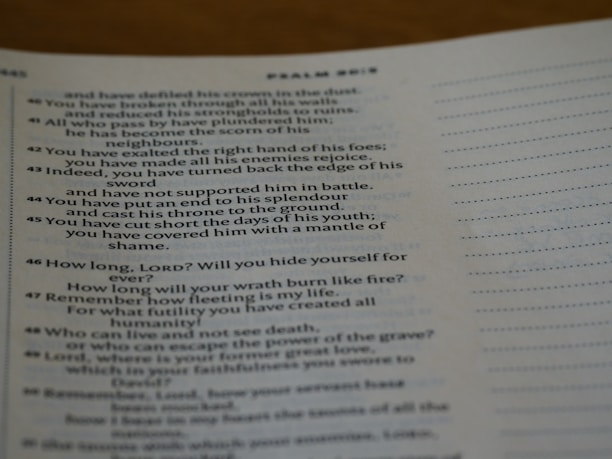 445
PSALM 90:5
and have defiled his crown in the dust.
40 You have broken through all his walls
and reduced his strongholds to ruins.
41 All who pass by have plundered him;
he has become the scorn of his
neighbours.
42 You have exalted the right hand of his foes;
you have made all his enemies rejoice.
43 Indeed, you have turned back the edge of his
sword
and have not supported him in battle.
44 You have put an end to his splendour
and cast his throne to the ground.
45 You have cut short the days of his youth;
you have covered him with a mantle of
shame.
46 How long, LORD? Will you hide yourself for
ever?
How long will your wrath burn like fire?
47 Remember how fleeting is my life.
For what futility you have created all
humanity!
48 Who can live and not see death,
or who can escape the power of the grave?
49 Lord, where is your former great love,
which in your faithfulness you swore to
David?
50 Remember, Lord, how your servant has
been mocked,
how I bear in my heart the taunts of all the
nations,
51 the taunts with which your enemies, LORD,
have mocked